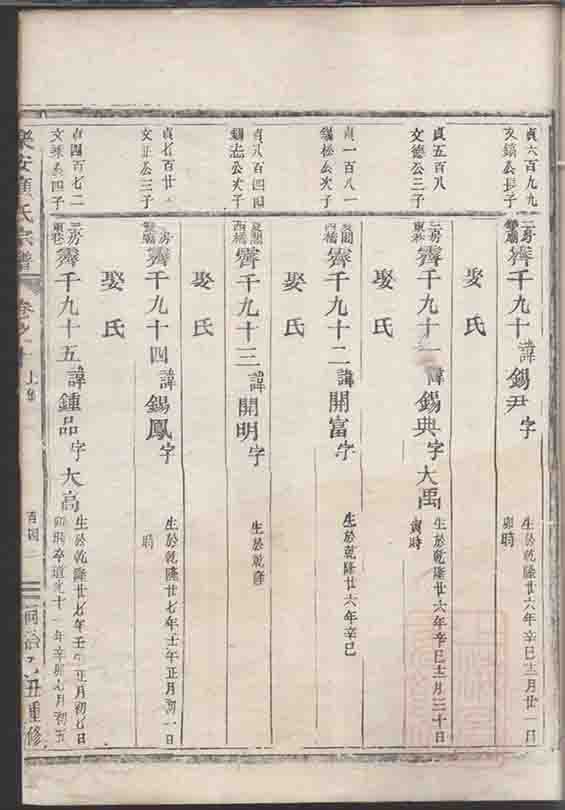 貞六百九九
文鎬公長子
三房
齊千九十 諱錫尹 字
生於乾隆廿六年辛巳十二月廿一日
卯時
娶氏
貞五百八
文德公三子
三房
東巷
齊千九十一 諱錫典 字大禹
生於乾隆廿六年辛巳十二月三十日
寅時
娶氏
貞一百八一
錫松公次子
西橋
齊千九十二 諱開富 字
生於乾隆廿六年辛巳
娶氏
貞八百四四
公次子
西橋
齊千九十三 諱開明 字
生於乾隆
娶氏
貞七百廿
文正公三子
房
齊千九十四 諱錫鳳 字
生於乾隆廿七年壬午正月初一日
時
娶氏
貞四百七二
公四子
三房
東巷
齊千九十五 諱鍾品 字大高
生於乾隆廿七年壬午正月初七日
卯時卒道光十一年辛卯七月初五
娶氏
樂安 氏宗譜
卷之 十
上
百四
同治乙丑重修